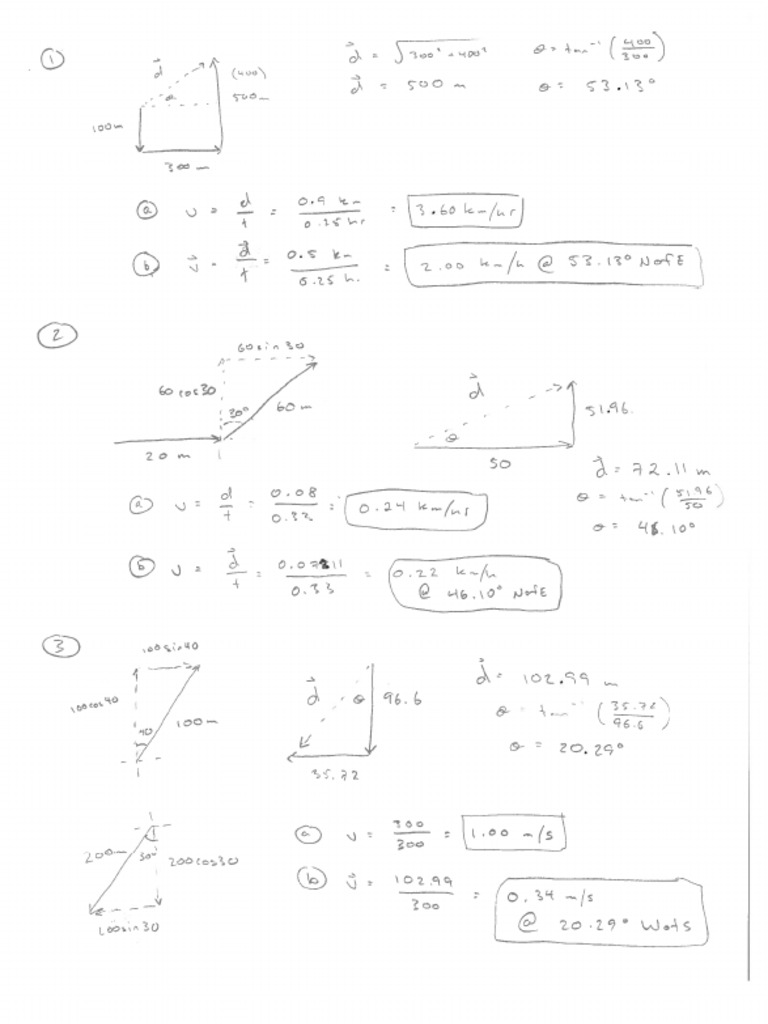 ①
d⃗ (400) 500m
θ
100m
300 m
d⃗ = √300² + 400²
d⃗ = 500 m
θ = tan⁻¹ (400/300)
θ = 53.13°
ⓐ v = d/t = 0.9 km/0.25 hr = 3.60 km/hr
ⓑ v⃗ = d⃗/t = 0.5 km/0.25 h. = 2.00 km/h @ 53.13° NofE
②
60 sin 30
60 cos 30
30° 60 m
20 m
d⃗
θ
51.96
50
d⃗ = 72.11 m
θ = tan⁻¹ (51.96/50)
θ = 46.10°
ⓐ v = d/t = 0.08/0.33 = 0.24 km/hr
ⓑ v = d⃗/t = 0.07211/0.33 = 0.22 km/h
@ 46.10° NofE
③
100 sin 40
100 cos 40
40 100m
d⃗ θ 96.6
35.72
d⃗ = 102.99 m
θ = tan⁻¹ (35.72/96.6)
θ = 20.29°
200m 30° 200 cos 30
ⓐ v = 300/300 = 1.00 m/s
ⓑ v⃗ = 102.99/300 = 0.34 m/s
@ 20.29° WofS